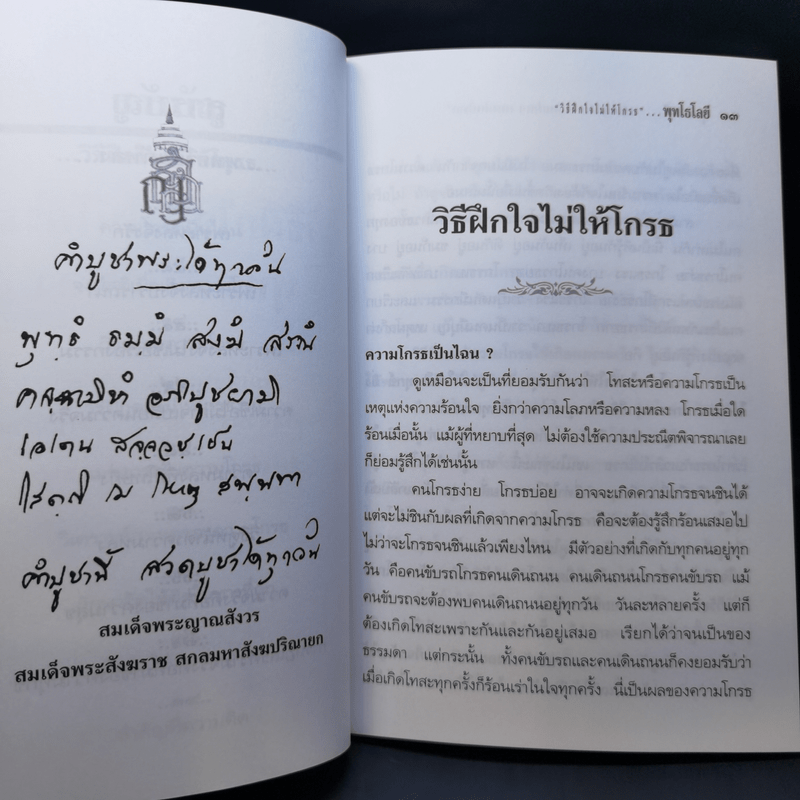 คำบูชาพระได้ทุกวัน
พุทฺธํ ธมฺมํ สงฺฆํ สรณํ
สจฺจวชฺเชน
โสตฺถิ เม โหตุ สพฺพทา
คำบูชานี้ สวดบูชาได้ทุกวัน
สมเด็จพระญาณสังวร
สมเด็จพระสังฆราช สกลมหาสังฆปริณายก
"วิธีฝึกใจไม่ให้โกรธ"...พุทโธโลยี ๑๓
วิธีฝึกใจไม่ให้โกรธ
ความโกรธเป็นไฉน ?
ดูเหมือนจะเป็นที่ยอมรับกันว่า โทสะหรือความโกรธเป็น
เหตุแห่งความร้อนใจ ยิ่งกว่าความโลภหรือความหลง โกรธเมื่อใด
ร้อนเมื่อนั้น แม้ผู้ที่หยาบที่สุด ไม่ต้องใช้ความประณีตพิจารณาเลย
ก็ย่อมรู้สึกได้เช่นนั้น
คนโกรธง่าย โกรธบ่อย อาจจะเกิดความโกรธจนชินได้
แต่จะไม่ชินกับผลที่เกิดจากความโกรธ คือจะต้องรู้สึกร้อนเสมอไป
ไม่ว่าจะโกรธจนชินแล้วเพียงไหน มีตัวอย่างที่เกิดกับทุกคนอยู่ทุก
วัน คือคนขับรถโกรธคนเดินถนน คนเดินถนนโกรธคนขับรถ แม้
คนขับรถจะต้องพบคนเดินถนนอยู่ทุกวัน วันละหลายครั้ง แต่ก็
ต้องเกิดโทสะเพราะกันและกันอยู่เสมอ เรียกได้ว่าจนเป็นของ
ธรรมดา แต่กระนั้น ทั้งคนขับรถและคนเดินถนนก็คงยอมรับว่า
เมื่อเกิดโทสะทุกครั้งก็ร้อนเร่าในใจทุกครั้ง นี่เป็นผลของความโกรธ